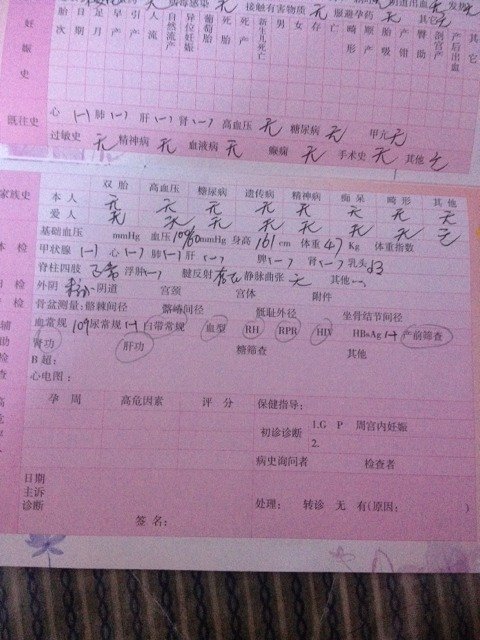 接触有害物质 无 服避孕药 无 其它 无
妊娠史 日期 足月产 早产 引产 人流 自然流产 异位妊娠 葡萄胎 死胎 死产 新生儿死亡 男 女 存 亡 畸形 过期产 胎吸 产钳 臀助 剖宫产 产后出血 其它
既往史 心 (-) 肺 (-) 肝 (-) 肾 (-) 高血压 无 糖尿病 无 甲亢 无
过敏史 无 精神病 无 血液病 无 癫痫 无 手术史 无 其他 无
家族史 双胎 高血压 糖尿病 遗传病 精神病 痴呆 畸形 其他
本人 无 无 无 无 无 无 无 无
爱人 无 无 无 无 无 无 无 无
基础血压 mmHg 血压 mmHg 身高 161 cm 体重 47 Kg 体重指数
甲状腺 (-) 心 (-) 肺 (-) 肝 (-) 脾 (-) 肾 (-) 乳头
脊柱四肢 正常 浮肿 (-) 腱反射 存在 静脉曲张 无 其他
外阴 阴道 宫颈 宫体 附件
骨盆测量: 髂棘间径 髂嵴间径 骶耻外径 坐骨结节间径
血常规 109 尿常规 (-) 白带常规 血型 RH RPR HIV HBsAg (-) 产前筛查
肾功 肝功 糖筛查 其他
B超:
心电图:
孕周 高危因素 评分 保健指导:
初诊诊断 1.G P 周宫内妊娠
2.
病史询问者 检查者
日期
主诉
诊断
处理: 转诊 无 有(原因: )
签名: